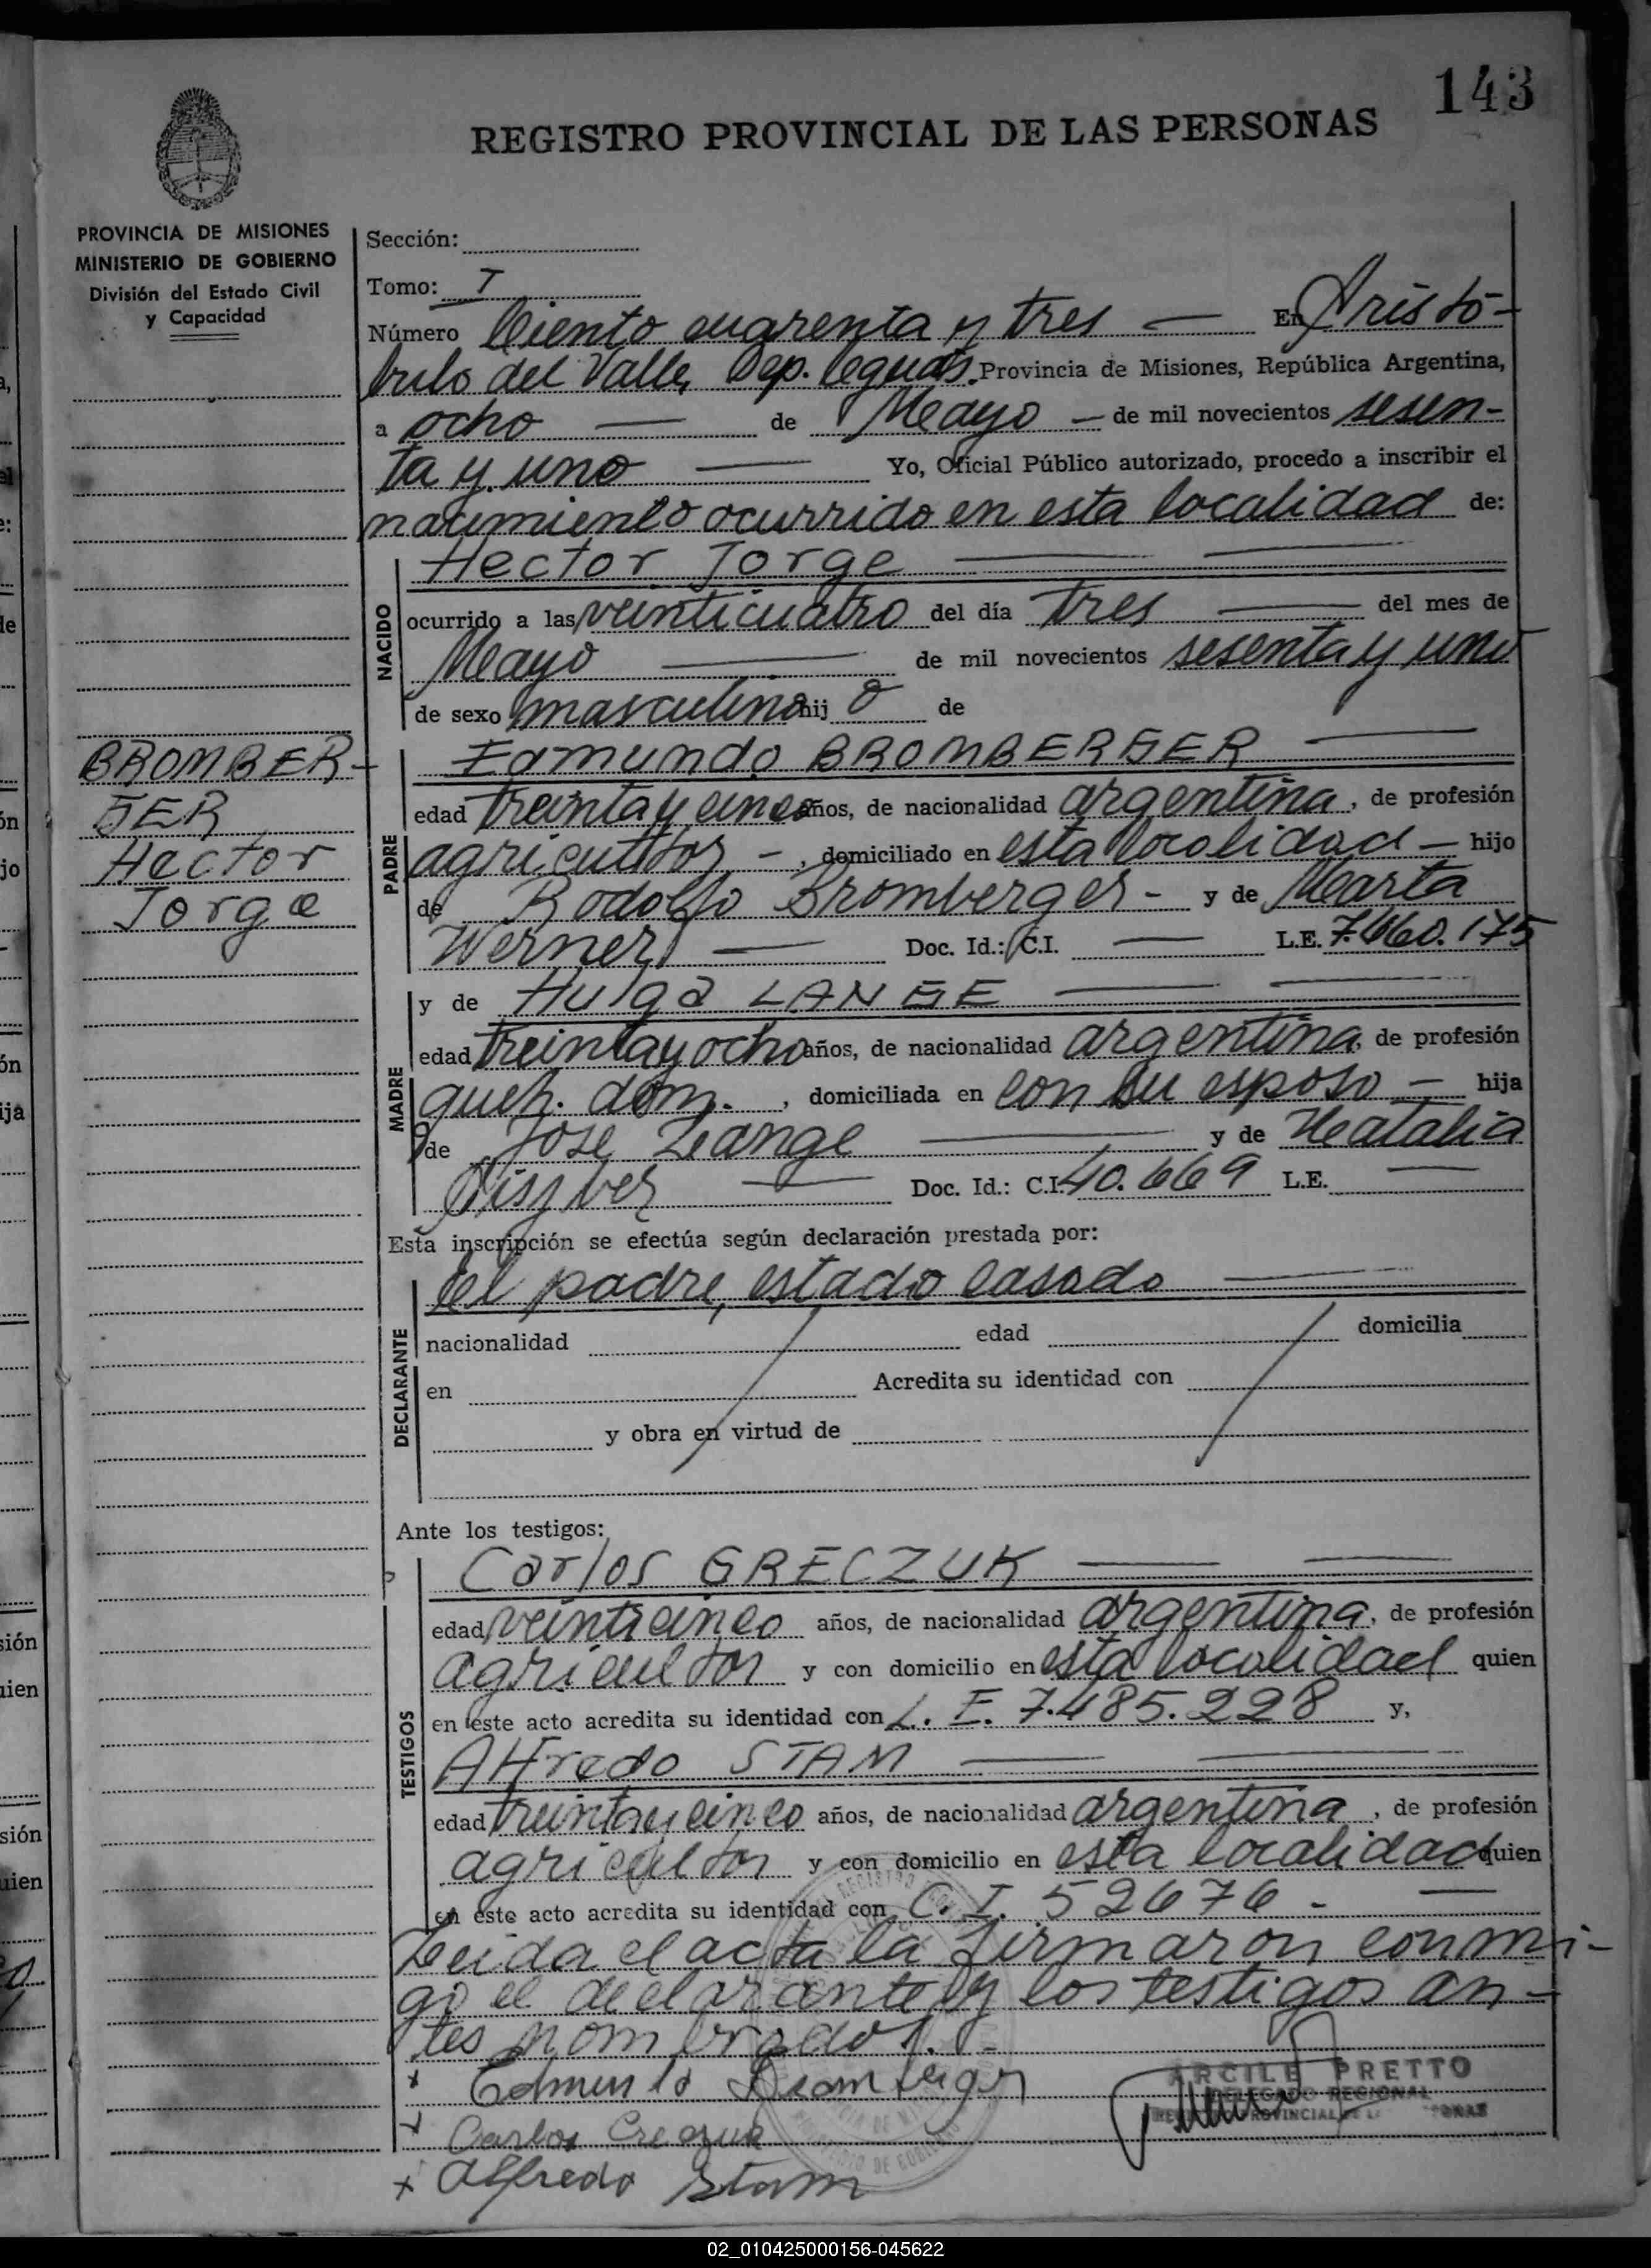 143
REGISTRO PROVINCIAL DE LAS PERSONAS
PROVINCIA DE MISIONES
MINISTERIO DE GOBIERNO
División del Estado Civil
y Capacidad
BROMBER-
GER
Hector
Jorge
Sección:
Tomo: I
Número Ciento cuarenta y tres — En Aristó-
bulo del Valle, Dep. Provincia de Misiones, República Argentina,
a ocho — de Mayo — de mil novecientos sesen-
ta y uno — Yo, Oficial Público autorizado, procedo a inscribir el
nacimiento ocurrido en esta localidad de:
NACIDO
Hector Jorge
ocurrido a las veinticuatro del día tres — del mes de
Mayo — de mil novecientos sesenta y uno
de sexo masculino hij o de
PADRE
Edmundo BROMBERGER —
edad treinta y cinco años, de nacionalidad argentina, de profesión
agricultor -, domiciliado en esta localidad — hijo
de Rodolfo Bromberger - y de Marta
Werner — Doc. Id.: C.I. — L.E. 7.460.175
MADRE
y de Hulga LANGE —
edad treinta y ocho años, de nacionalidad argentina, de profesión
queh. dom. , domiciliada en con su esposo — hija
de José Lange — y de Natalia
— Doc. Id.: C.I. 40.669 L.E. —
Esta inscripción se efectúa según declaración prestada por:
DECLARANTE
el padre, estado casado —
nacionalidad edad domicilia
en Acredita su identidad con
y obra en virtud de
Ante los testigos:
TESTIGOS
Carlos GRECZUK —
edad veinticinco años, de nacionalidad argentina, de profesión
agricultor y con domicilio en esta localidad quien
en este acto acredita su identidad con L. E. 7.485.228 y,
Alfredo STAM —
edad treinta y cinco años, de nacionalidad argentina, de profesión
agricultor y con domicilio en esta localidad quien
en este acto acredita su identidad con C. I. 52676 -
Leida el acta la firmaron conmi-
go el declarante y los testigos an-
tes nombrados.-
x Edmundo Bromberger
x Carlos Greczuk
x Alfredo Stam
ARCILE PRETTO
DELEGADO REGIONAL
02_010425000156-045622